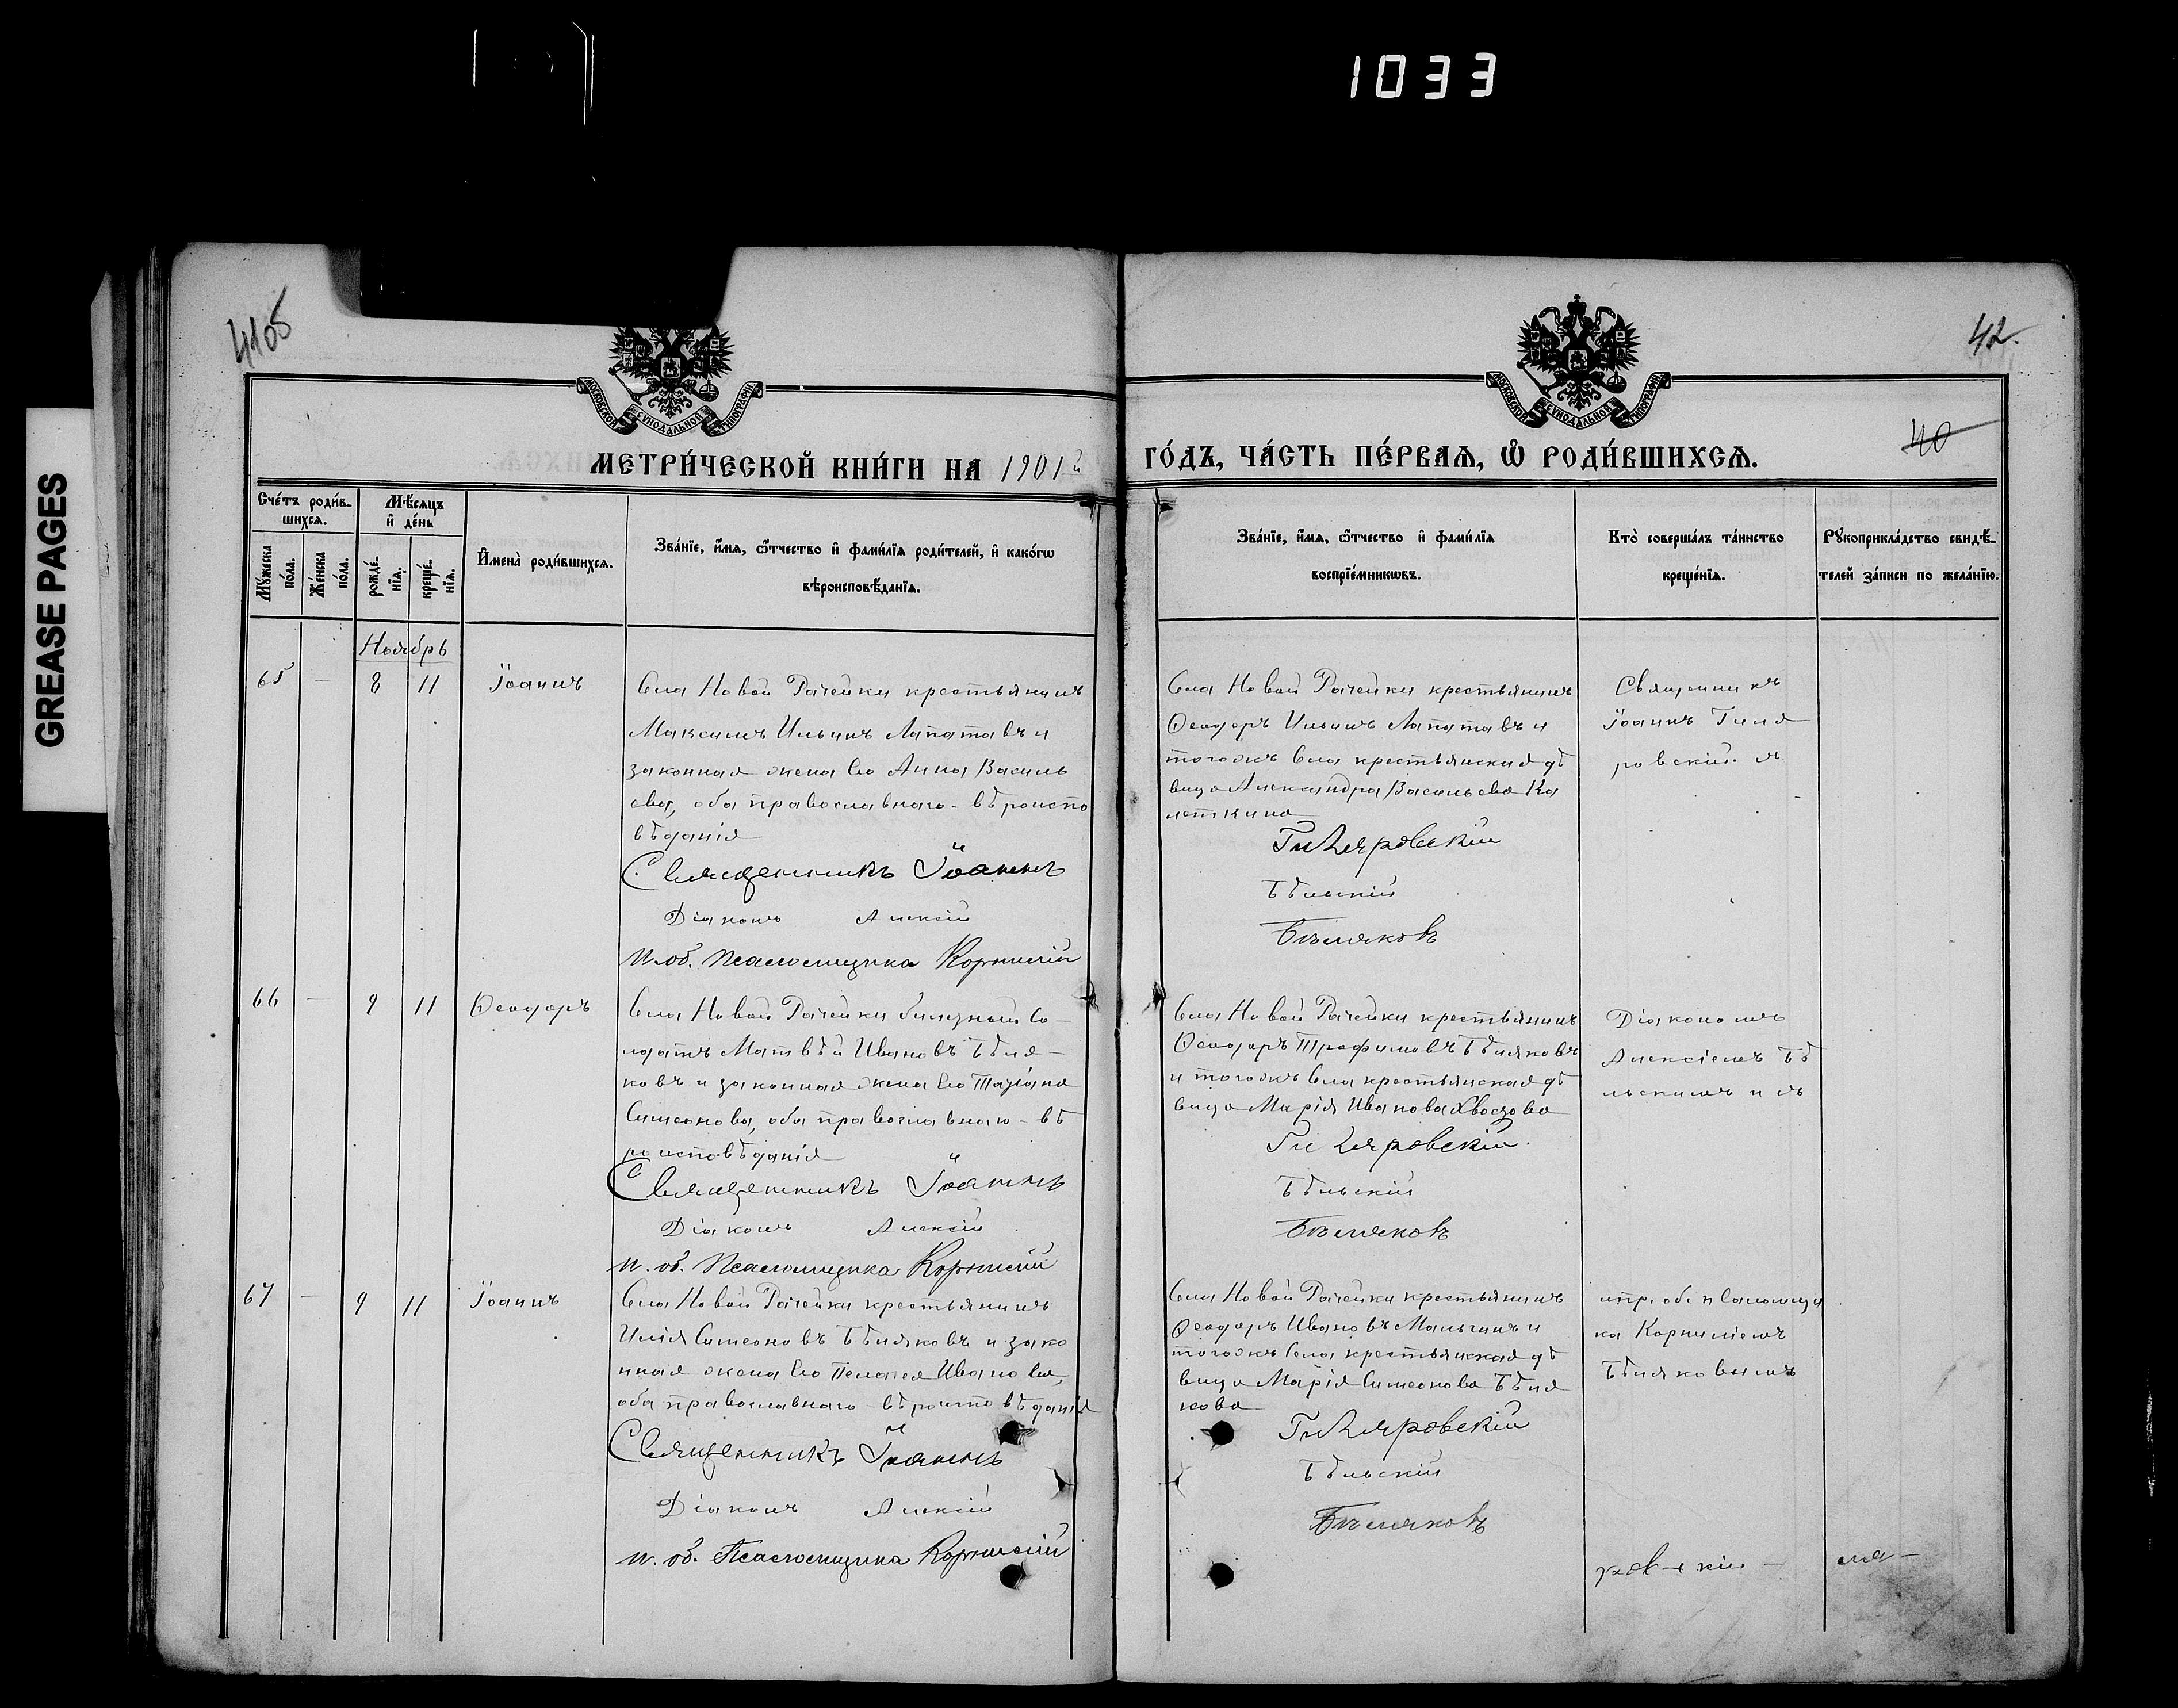 1033
GREASE PAGES
4105
42.
40
МОСКОВСКОЙ СѴНОДАЛЬНОЙ ТИПОГРАФІИ
МОСКОВСКОЙ СѴНОДАЛЬНОЙ ТИПОГРАФІИ
МЕТРИ́ЧЕСКОЙ КНИ́ГИ НА 1901й
ГО́ДЪ, ЧА́СТЬ ПЕ́РВАѦ, Ѡ҆ РОДИ́ВШИХСѦ.
Счéтъ роди́в-
шихсѧ.
Мꙋ́жеска по́ла.
Же́нска по́ла.
Мѣ́сѧцъ
и҆ де́нь
рожде́-нїѧ.
креще́-нїѧ.
И҆мена̀ роди́вшихсѧ.
Зва́нїе, и҆́мѧ, ѻ҆́тчество и҆ фами́лїѧ роди́телей, и҆ како́гѡ
вѣроисповѣ́данїѧ.
Зва́нїе, и҆́мѧ, ѻ҆́тчество и҆ фами́лїѧ
воспрїе́мникѡвъ.
Кто̀ соверша́лъ та́инство
креще́нїѧ.
Рꙋкоприкла́дство свидѣ́-
телей за́писи по жела́нїю.
Ноябрь
65 — 8 11 Іоаннъ
Села Новой Рачейки крестьянинъ
Максимъ Ильинъ Лапатавъ и
законная жена его Анна Василь
ева, оба православнаго - вѣроиспо
вѣданія
Священникъ Іоаннъ
Діаконъ Алексій
И. об. Псаломщика Корнилій
Села Новой Рачейки крестьянинъ
Ѳеодоръ Ильинъ Лапатавъ и
тогожъ села крестьянская дѣ
вица Александра Васильева Ка
леткина
Гиляровскій
Бѣльскій
Бѣляковъ
Священникъ
Іоаннъ Гиля
ровскій съ
66 — 9 11 Ѳеодоръ
Села Новой Рачейки билетной со-
лдатъ Матвѣй Ивановъ Бѣля-
ковъ и законная жена его Татіана
Симеонова, оба православнаго - вѣ
роисповѣданія
Священникъ Іоаннъ
Діаконъ Алексій
И. об. Псаломщика Корнилій
Села Новой Рачейки крестьянинъ
Ѳеодоръ Трофимовъ Бѣляковъ
и тогожъ села крестьянская дѣ
вица Марія Иванова Хвостова
Гиляровскій
Бѣльскій
Бѣляковъ
Діакономъ
Алексіемъ Бѣ
льскимъ и съ
67 — 9 11 Іоаннъ
Села Новой Рачейки крестьянинъ
Илія Симеоновъ Бѣляковъ и зако
нная жена его Пелагея Иванова,
оба православнаго - вѣроисповѣданія
Священникъ Іоаннъ
Діаконъ Алексій
И. об. Псаломщика Корнилій
Села Новой Рачейки крестьянинъ
Ѳеодоръ Ивановъ Малыгинъ и
тогожъ села крестьянская дѣ
вица Марія Симеонова Бѣля
кова
Гиляровскій
Бѣльскій
Бѣляковъ
испр. об. псаломщи
ка Корниліемъ
Бѣляковымъ